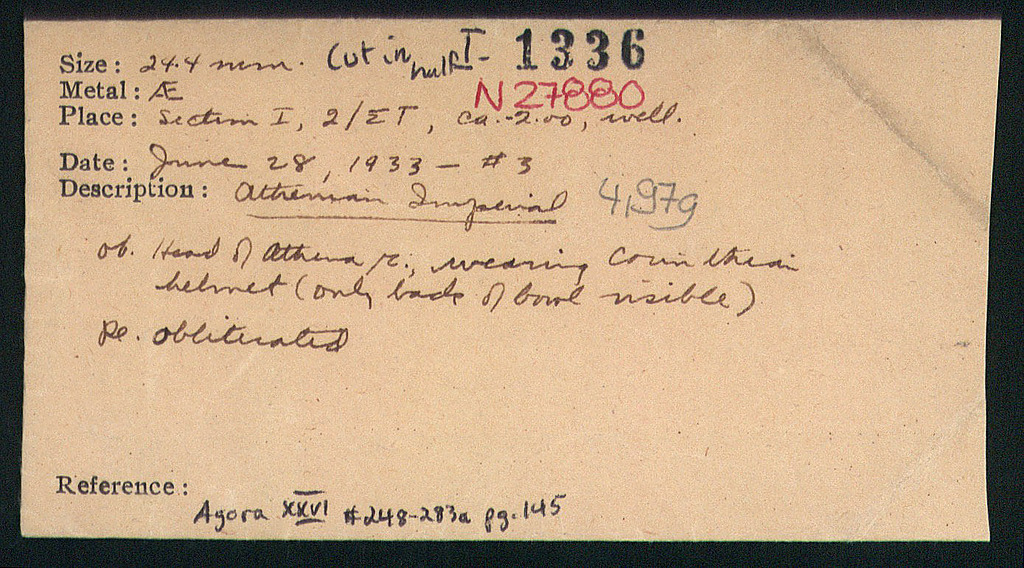 Size: 24.4 mm. Cut in half I- 1336
Metal: Æ N 27880
Place: Section I, 2/ΣΤ, ca. -2.00, well.
Date: June 28, 1933 - #3
Description: Athenian Imperial 41979
ob. Head of Athena r., wearing Corinthian
helmet (only back of bowl visible)
Re. obliterated
Reference:
Agora XXVI #248-283a pg. 145